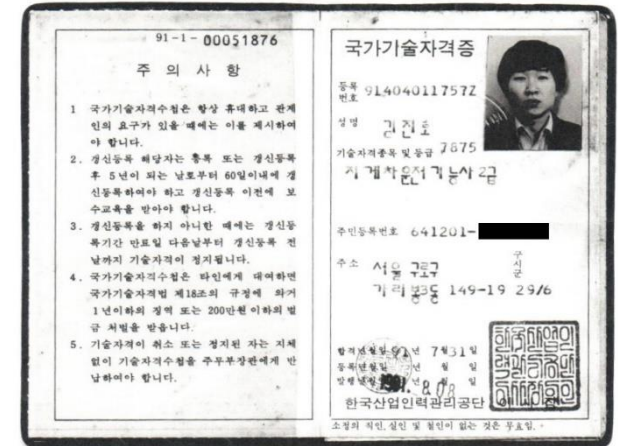 91-1- 00051876
주 의 사 항
1 국가기술자격수첩은 항상 휴대하고 관계
인의 요구가 있을 때에는 이를 제시하여
야 합니다.
2. 갱신등록 해당자는 등록 또는 갱신등록
후 5년이 되는 날로부터 60일이내에 갱
신등록하여야 하고 갱신등록 이전에 보
수교육을 받아야 합니다.
3. 갱신등록을 하지 아니한 때에는 갱신등
록기간 만료일 다음날부터 갱신등록 전
날까지 기술자격이 정지됩니다.
4. 국가기술자격수첩은 타인에게 대여하면
국가기술자격법 제18조의 규정에 의거
1년이하의 징역 또는 200만원 이하의 벌
금 처벌을 받읍니다.
5. 기술자격이 취소 또는 정지된 자는 지체
없이 기술자격수첩을 주무부장관에게 반
납하여야 합니다.
국가기술자격증
등록번호 91404011757Z
성명 김진호
기술자격종목 및 등급 7875
지게차운전기능사 2급
주민등록번호 641201-
주소 서울 구로구
구시군
가리봉3동 149-19 29/6
합격년월일 91년 7월31일
등록년월일
발행년월일 1991. 8. 08
한국산업인력관리공단
소정의 직인, 실인 및 철인이 없는 것은 무효임.